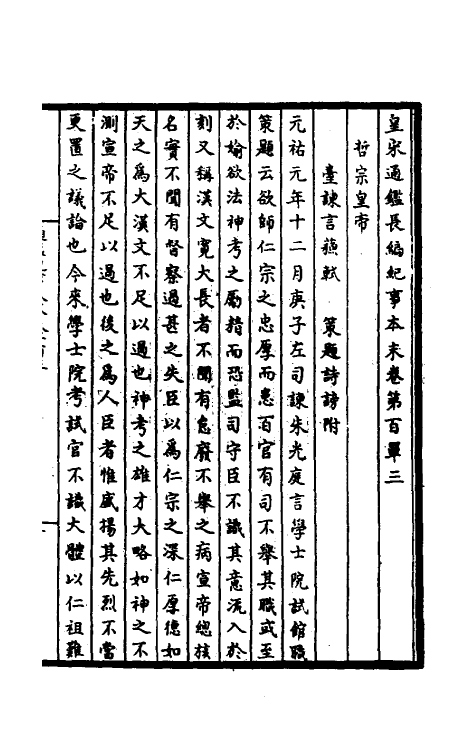 皇宋通鑑長編紀事本末卷第百單三
哲宗皇帝
臺諫言蘇軾 策題詩謗附
元祐元年十二月庚子左司諫朱光庭言學士院試館職
策題云欲師仁宗之忠厚而患百官有司不舉其職或至
於媮欲法神考之勵精而恐監司守臣不識其意流入於
刻又稱漢文寬大長者不聞有怠廢不舉之病宣帝總核
名實不聞有督察過甚之失臣以為仁宗之深仁厚德如
天之為大漢文不足以過也神考之雄才大略如神之不
測宣帝不足以過也後之為人臣者惟盛揚其先烈不當
更置之議論也今來學士院考試官不識大體以仁祖難